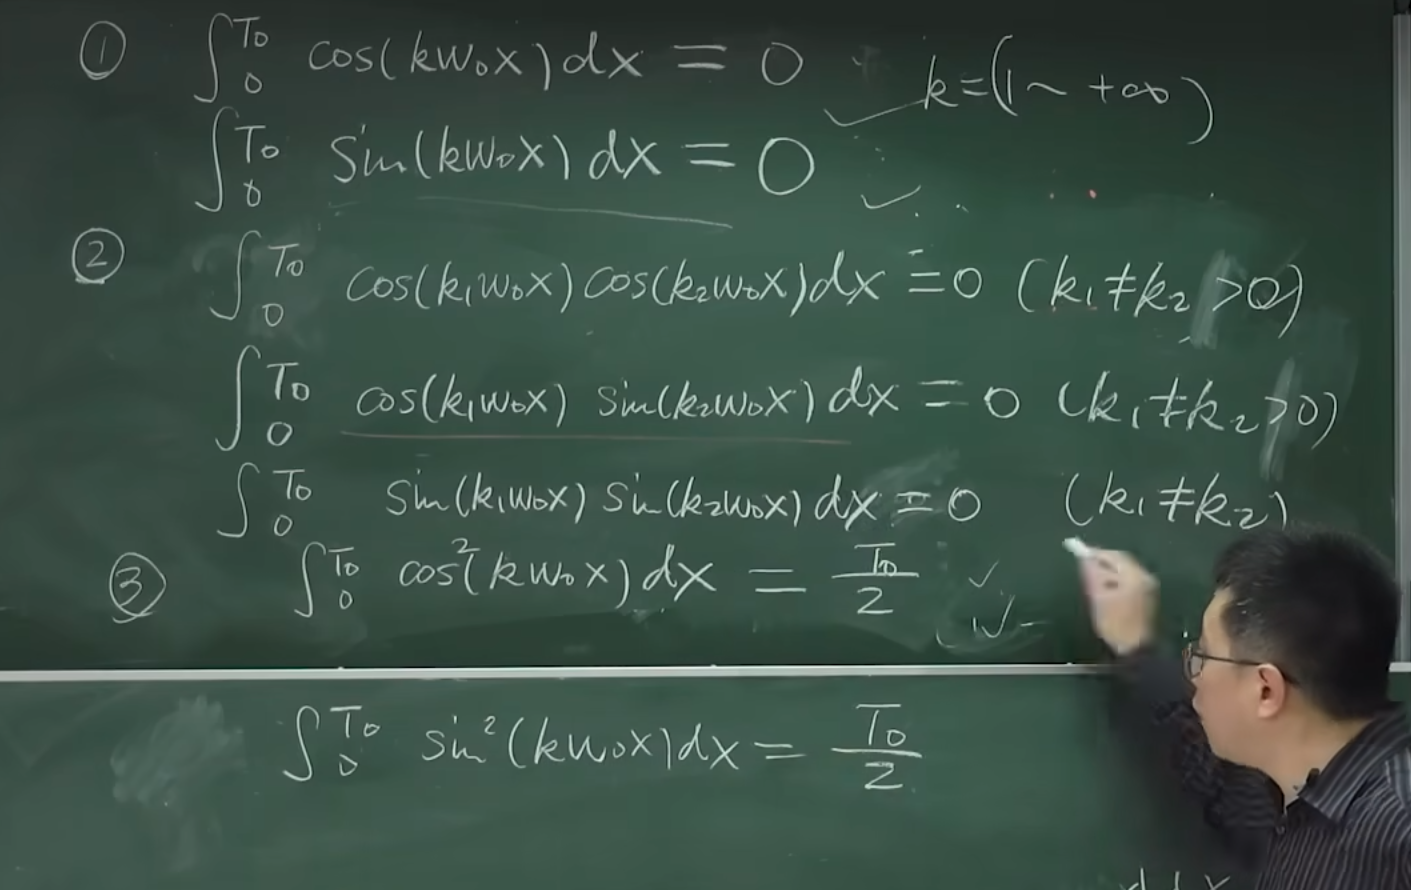 ① ∫₀^T₀ cos(kw₀x)dx = 0
k=(1~+∞)
∫₀^T₀ sin(kw₀x)dx = 0
② ∫₀^T₀ cos(k₁w₀x)cos(k₂w₀x)dx = 0 (k₁≠k₂>0)
∫₀^T₀ cos(k₁w₀x) sin(k₂w₀x)dx = 0 (k₁≠k₂>0)
∫₀^T₀ sin(k₁w₀x) sin(k₂w₀x)dx = 0 (k₁≠k₂)
③ ∫₀^T₀ cos²(kw₀x)dx = T₀/2
∫₀^T₀ sin²(kw₀x)dx = T₀/2